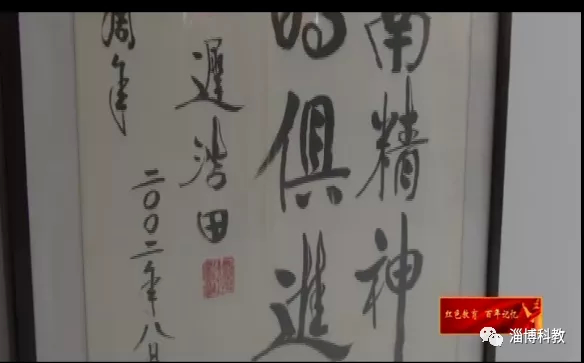 南精神
時俱進
遲浩田
周年
二〇〇二年八月
红色教育 百年记忆
淄博科教